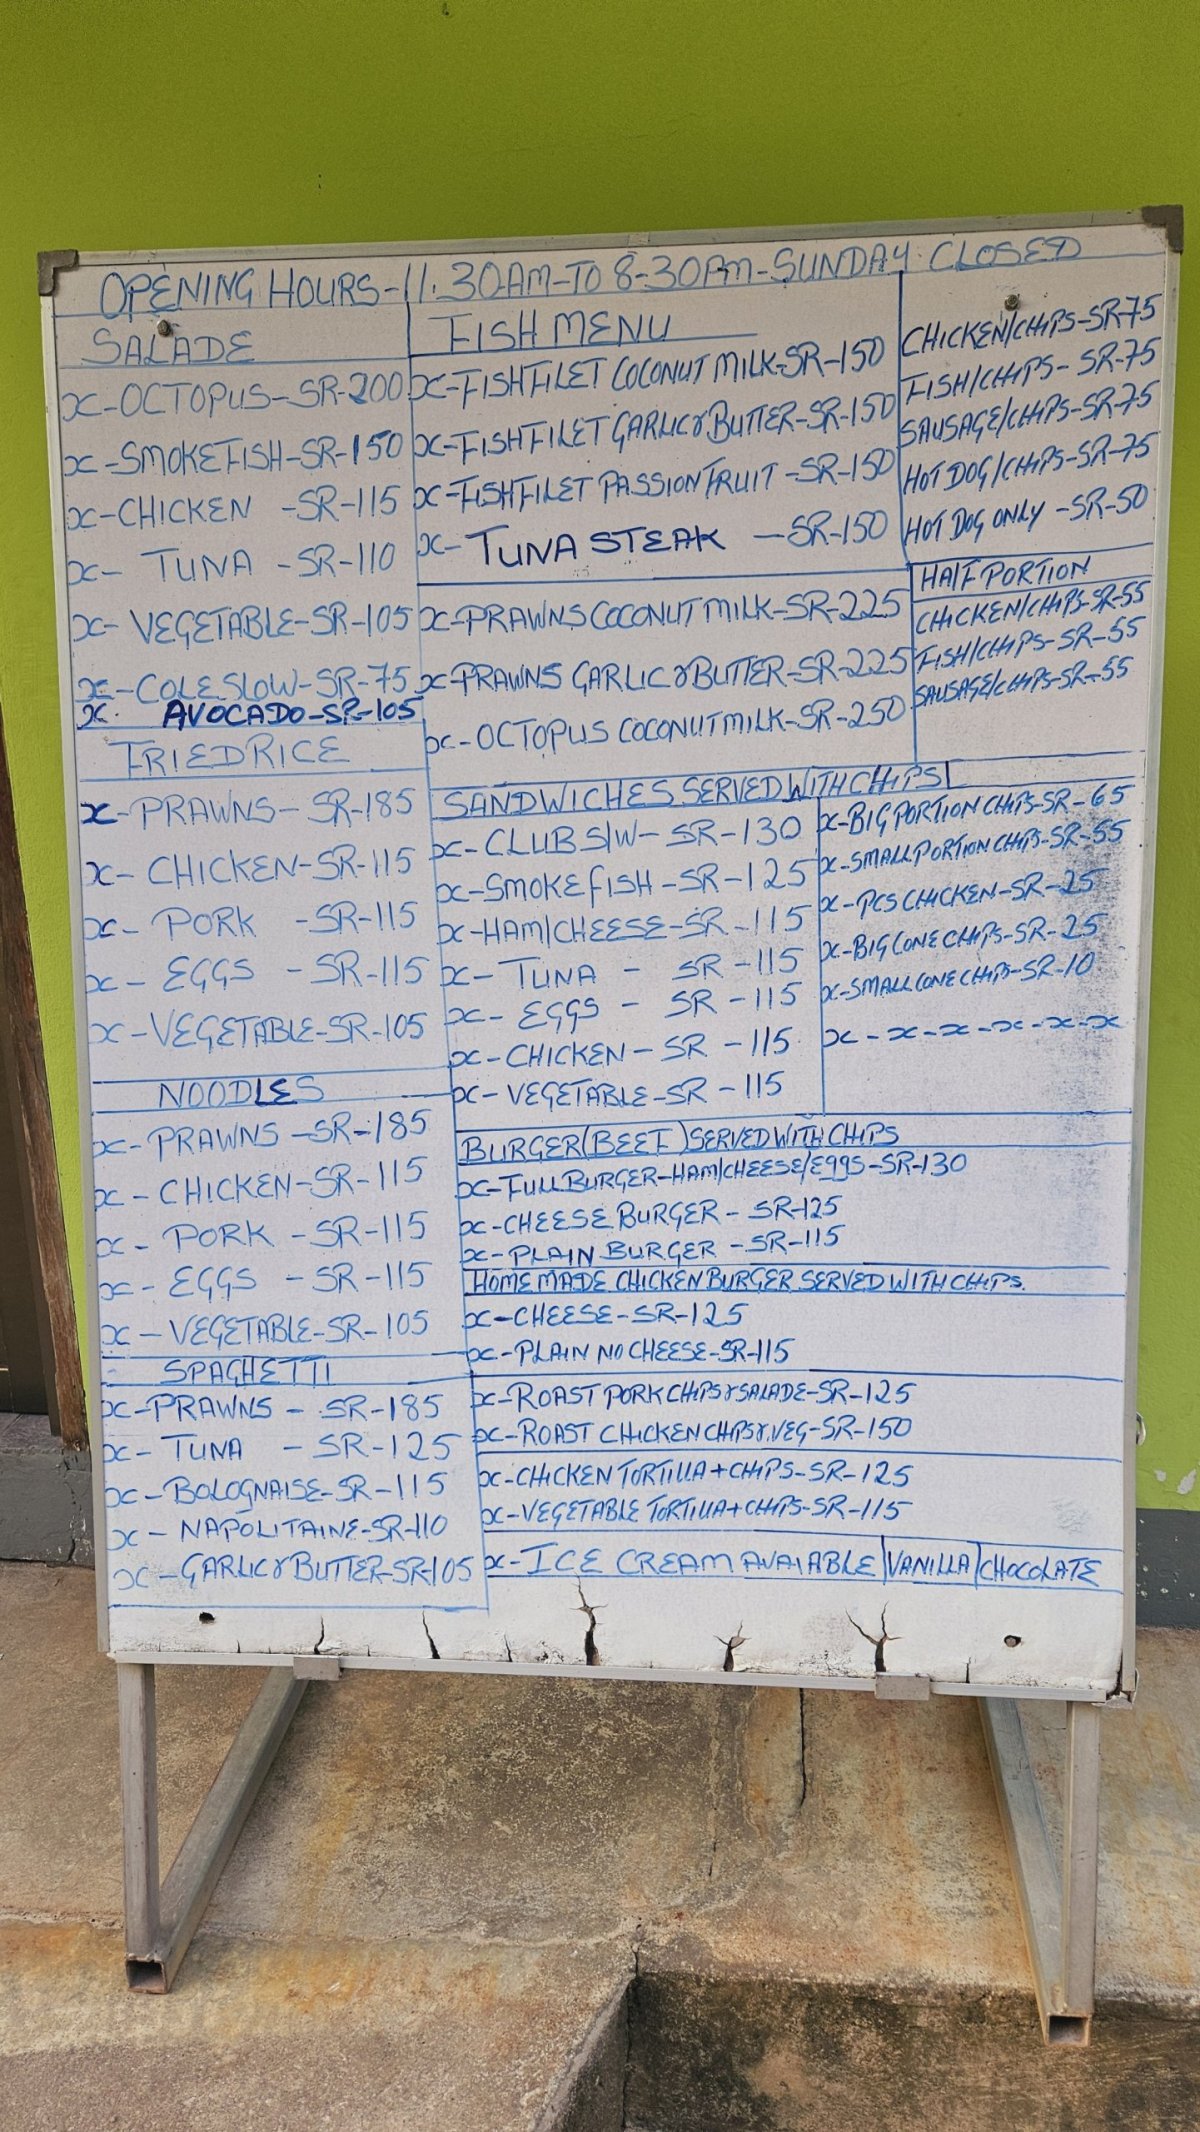 OPENING HOURS-11.30AM-TO 8-30PM-SUNDAY CLOSED
SALADE
x-OCTOPUS-SR-200
x-SMOKEFISH-SR-150
x-CHICKEN -SR-115
x- TUNA -SR-110
x- VEGETABLE-SR-105
x-COLESLOW-SR-75
x. AVOCADO-SR-105
FRIEDRICE
x-PRAWNS- SR-185
x- CHICKEN-SR-115
x- PORK -SR-115
x- EGGS -SR-115
x-VEGETABLE-SR-105
NOODLES
x-PRAWNS -SR-185
x-CHICKEN-SR-115
x- PORK -SR-115
x- EGGS -SR-115
x-VEGETABLE-SR-105
SPAGHETTI
x-PRAWNS - SR-185
x- TUNA - SR-125
x-BOLOGNAISE-SR-115
x- NAPOLITAINE-SR-110
x-GARLIC&BUTTER-SR-105
FISH MENU
x-FISHFILET COCONUT MILK-SR-150
x-FISHFILET GARLIC&BUTTER-SR-150
x-FISHFILET PASSIONFRUIT -SR-150
x- TUNA STEAK -SR-150
x-PRAWNS COCONUT MILK-SR-225
x-PRAWNS GARLIC&BUTTER-SR-225
x-OCTOPUS COCONUT MILK-SR-250
CHICKEN/CHIPS-SR-75
FISH/CHIPS- SR-75
SAUSAGE/CHIPS-SR-75
HOT DOG/CHIPS-SR-75
HOT DOG ONLY -SR-50
HALF PORTION
CHICKEN/CHIPS-SR-55
FISH/CHIPS-SR-55
SAUSAGE/CHIPS-SR-55
SANDWICHES SERVED WITH CHIPS
x-CLUB S/W- SR-130
x-SMOKE FISH -SR-125
x-HAM/CHEESE-SR-115
x- TUNA - SR -115
x- EGGS - SR -115
x-CHICKEN- SR -115
x-VEGETABLE-SR -115
x-BIG PORTION CHIPS-SR-65
x-SMALL PORTION CHIPS-SR-55
x-PCS CHICKEN-SR-25
x-BIG CONE CHIPS-SR-25
x-SMALL CONE CHIPS-SR-10
x-x-x-x-x-x
BURGER(BEEF)SERVED WITH CHIPS
x-FULL BURGER-HAM/CHEESE/EGGS-SR-130
x-CHEESE BURGER- SR-125
x-PLAIN BURGER -SR-115
HOME MADE CHICKEN BURGER SERVED WITH CHIPS.
x-CHEESE-SR-125
x-PLAIN NO CHEESE-SR-115
x-ROAST PORK CHIPS&SALADE-SR-125
x-ROAST CHICKEN CHIPS&.VEG-SR-150
x-CHICKEN TORTILLA+CHIPS-SR-125
x-VEGETABLE TORTILLA+CHIPS-SR-115
x-ICE CREAM AVAIABLE|VANILLA|CHOCOLATE